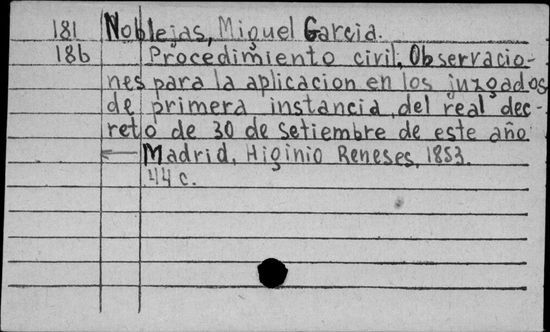 181 Noblejas, Miguel Garcia.
186 Procedimiento civil, Observacio-
nes para la aplicacion en los juzgados
de primera instancia, del real dec-
reto de 30 de setiembre de este año
Madrid, Higinio Reneses, 1853.
44 c.